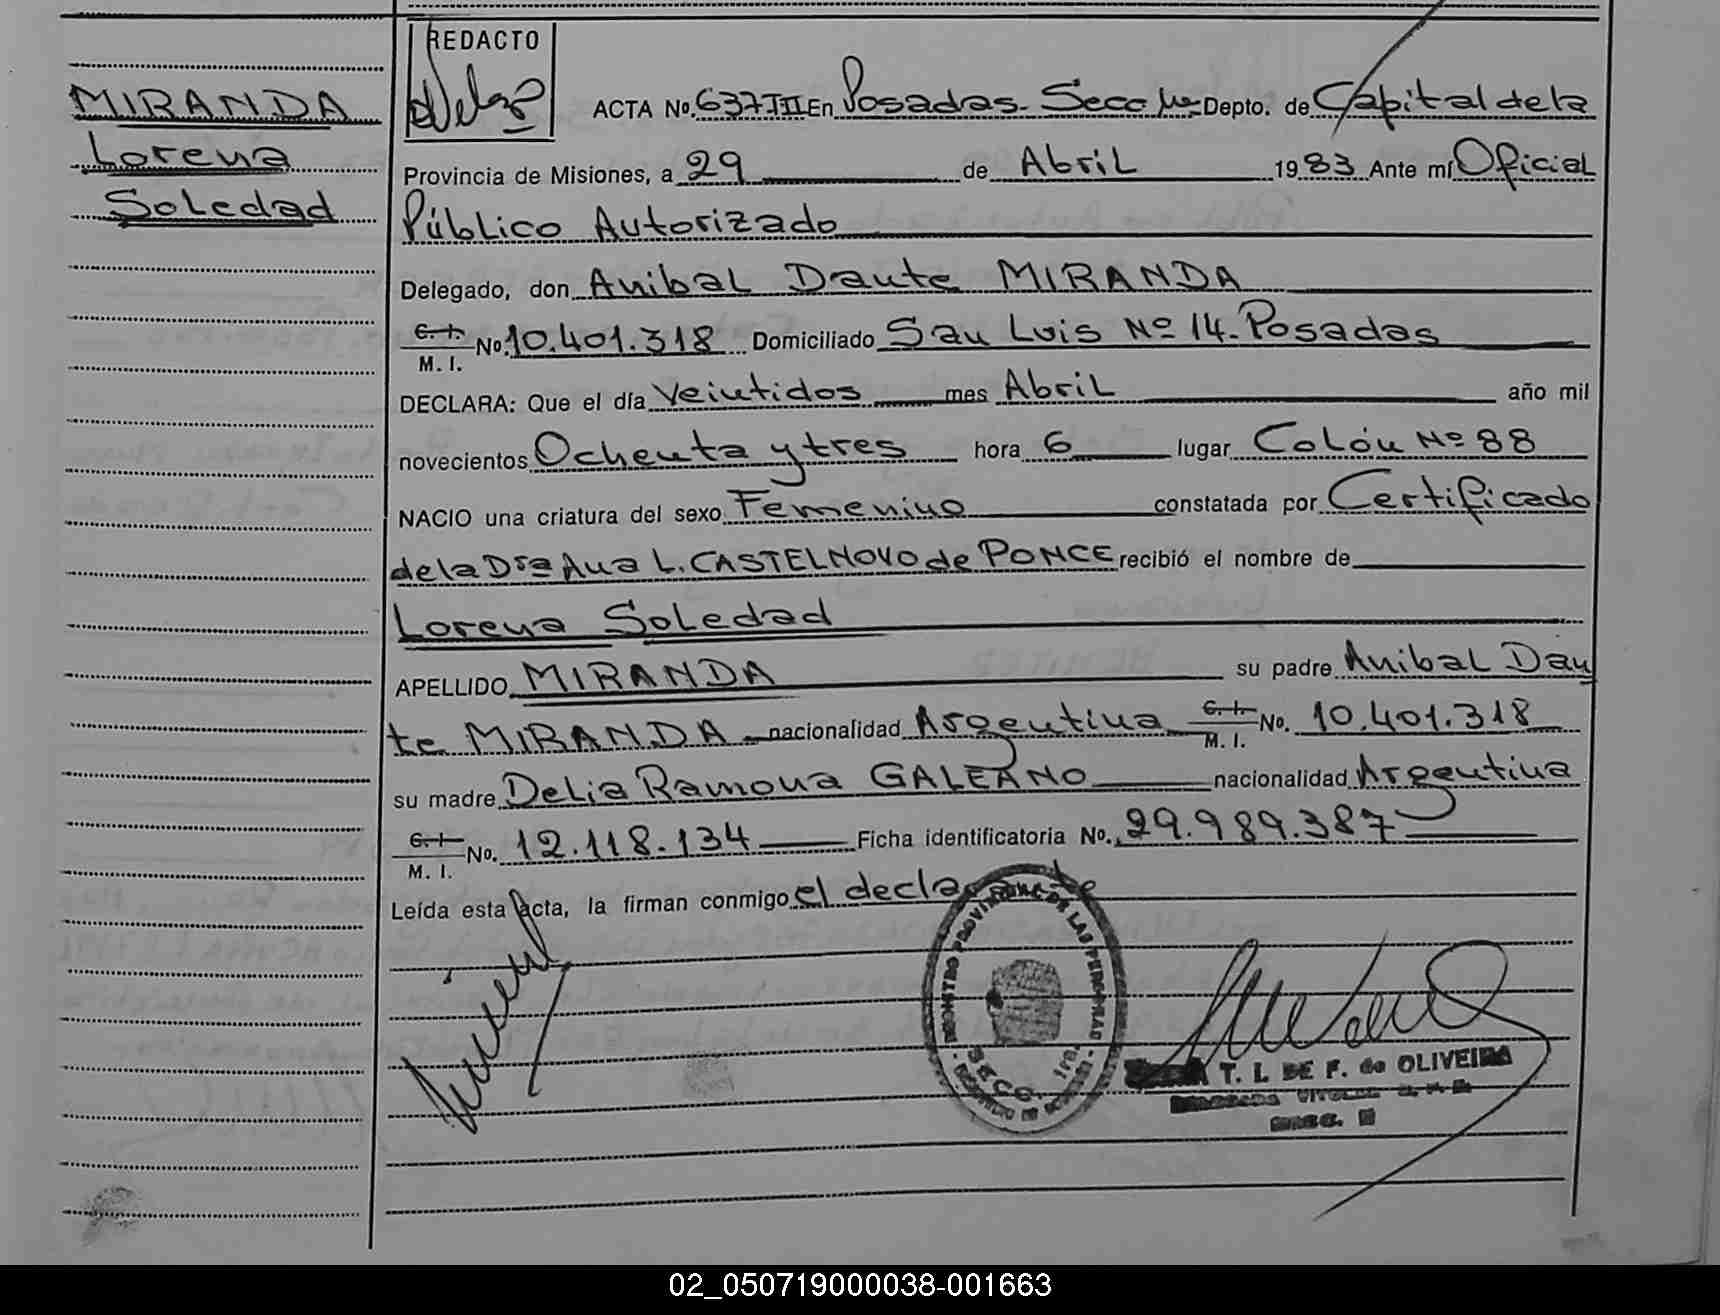 MIRANDA
Lorena
Soledad
REDACTO
ACTA No. 637 III En Posadas. Secc 1ra Depto. de Capital de la
Provincia de Misiones, a 29 de Abril 1983 Ante mí Oficial
Público Autorizado
Delegado, don Anibal Dante MIRANDA
C. I.
M. I. No. 10.401.318 Domiciliado San Luis Nº 14. Posadas
DECLARA: Que el día Veintidos mes Abril año mil
novecientos Ochenta y tres hora 6 lugar Colón Nº 88
NACIO una criatura del sexo Femenino constatada por Certificado
de la Dra Ana L. CASTELNOVO de PONCE recibió el nombre de
Lorena Soledad
APELLIDO MIRANDA su padre Anibal Dan
te MIRANDA nacionalidad Argentina C. I.
M. I. No. 10.401.318
su madre Delia Ramona GALEANO nacionalidad Argentina
C. I.
M. I. No. 12.118.134 Ficha identificatoria No. 29.989.387
Leída esta acta, la firman conmigo el declarante
REGISTRO PROVINCIAL DE LAS PERSONAS
SECC. 1ra.
T. I. DE F. de OLIVEIRA
02_050719000038-001663